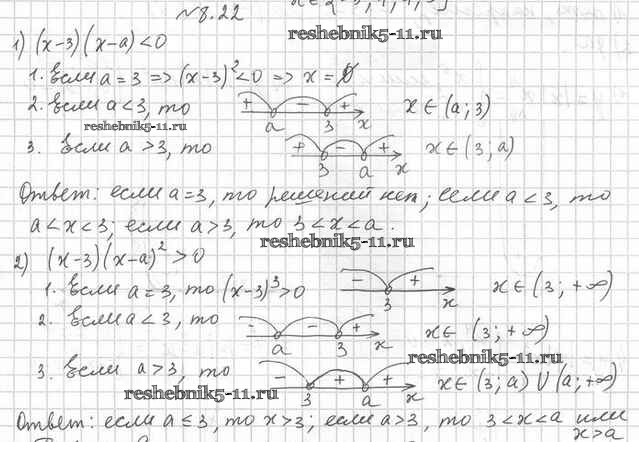 №8.22
reshebnik5-11.ru
1) (x-3)(x-a)<0
1. Если a=3 => (x-3)²<0 => x=∅
2. Если a<3, то + - + a 3 x x∈(a;3)
reshebnik5-11.ru
3. Если a>3, то + - + 3 a x x∈(3;a)
Ответ: если a=3, то решений нет; если a<3, то
a<x<3; если a>3, то 3<x<a.
reshebnik5-11.ru
2) (x-3)(x-a)²>0
1. Если a=3, то (x-3)³>0 - + 3 x x∈(3;+∞)
2. Если a<3, то - - + a 3 x x∈(3;+∞)
reshebnik5-11.ru
3. Если a>3, то - + + 3 a x x∈(3;a)∪(a;+∞)
reshebnik5-11.ru
Ответ: если a≤3, то x>3; если a>3, то 3<x<a или
x>a